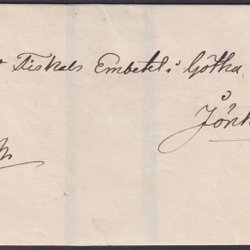 Fiskals Embetet i Götha
Jönk